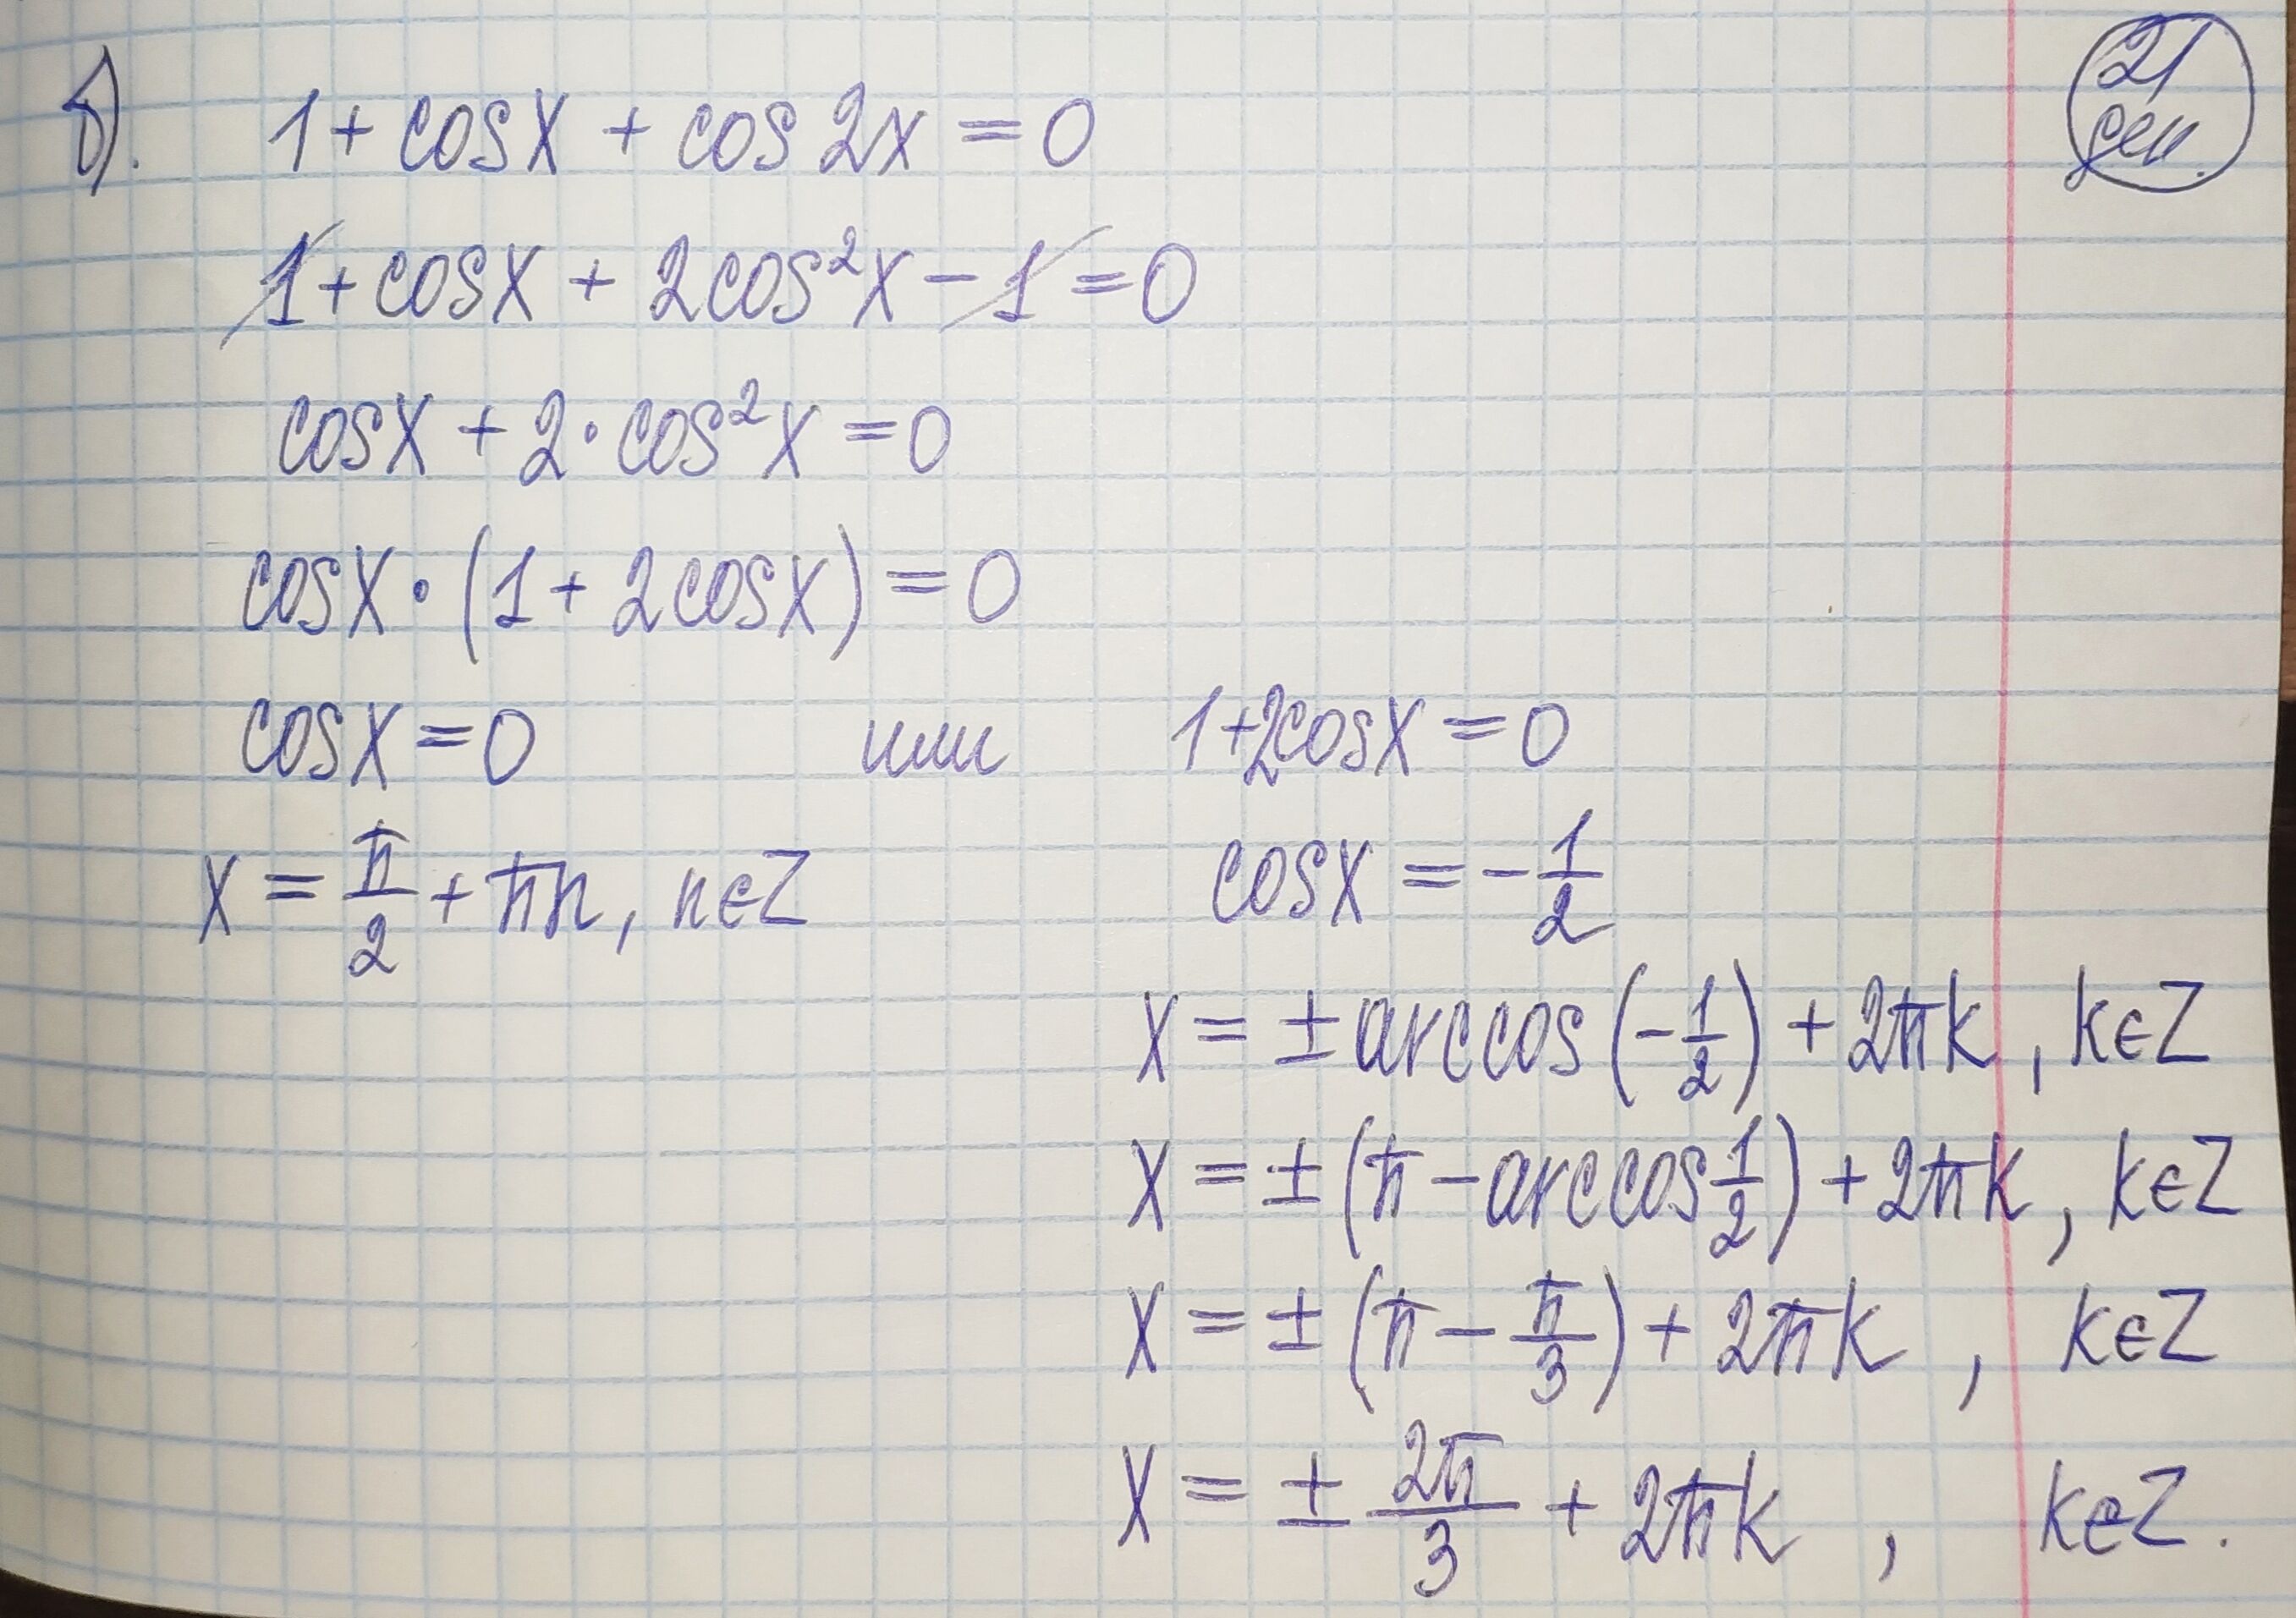 б). 1 + cosx + cos 2x = 0
21
дек.
1 + cosx + 2cos²x - 1 = 0
cosx + 2·cos²x = 0
cosx · (1 + 2cosx) = 0
cosx = 0 или 1+2cosx = 0
x = π/2 + πn, n∈Z cosx = -1/2
x = ± arccos(-1/2) + 2πk, k∈Z
x = ± (π - arccos 1/2) + 2πk, k∈Z
x = ± (π - π/3) + 2πk, k∈Z
x = ± 2π/3 + 2πk, k∈Z.